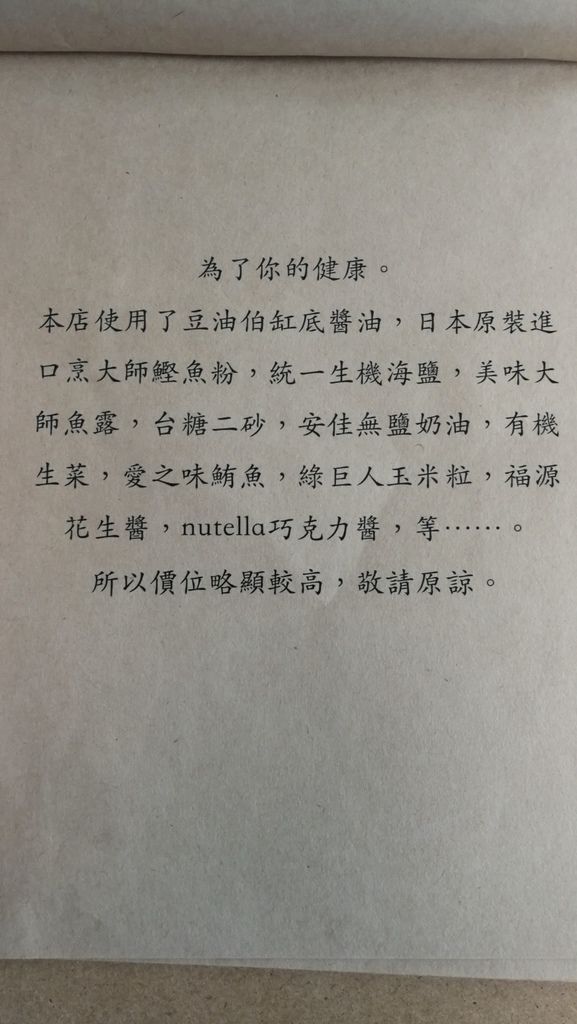 為了你的健康。
本店使用了豆油伯缸底醬油，日本原裝進
口烹大師鰹魚粉，統一生機海鹽，美味大
師魚露，台糖二砂，安佳無鹽奶油，有機
生菜，愛之味鮪魚，綠巨人玉米粒，福源
花生醬，nutella巧克力醬，等⋯⋯。
所以價位略顯較高，敬請原諒。